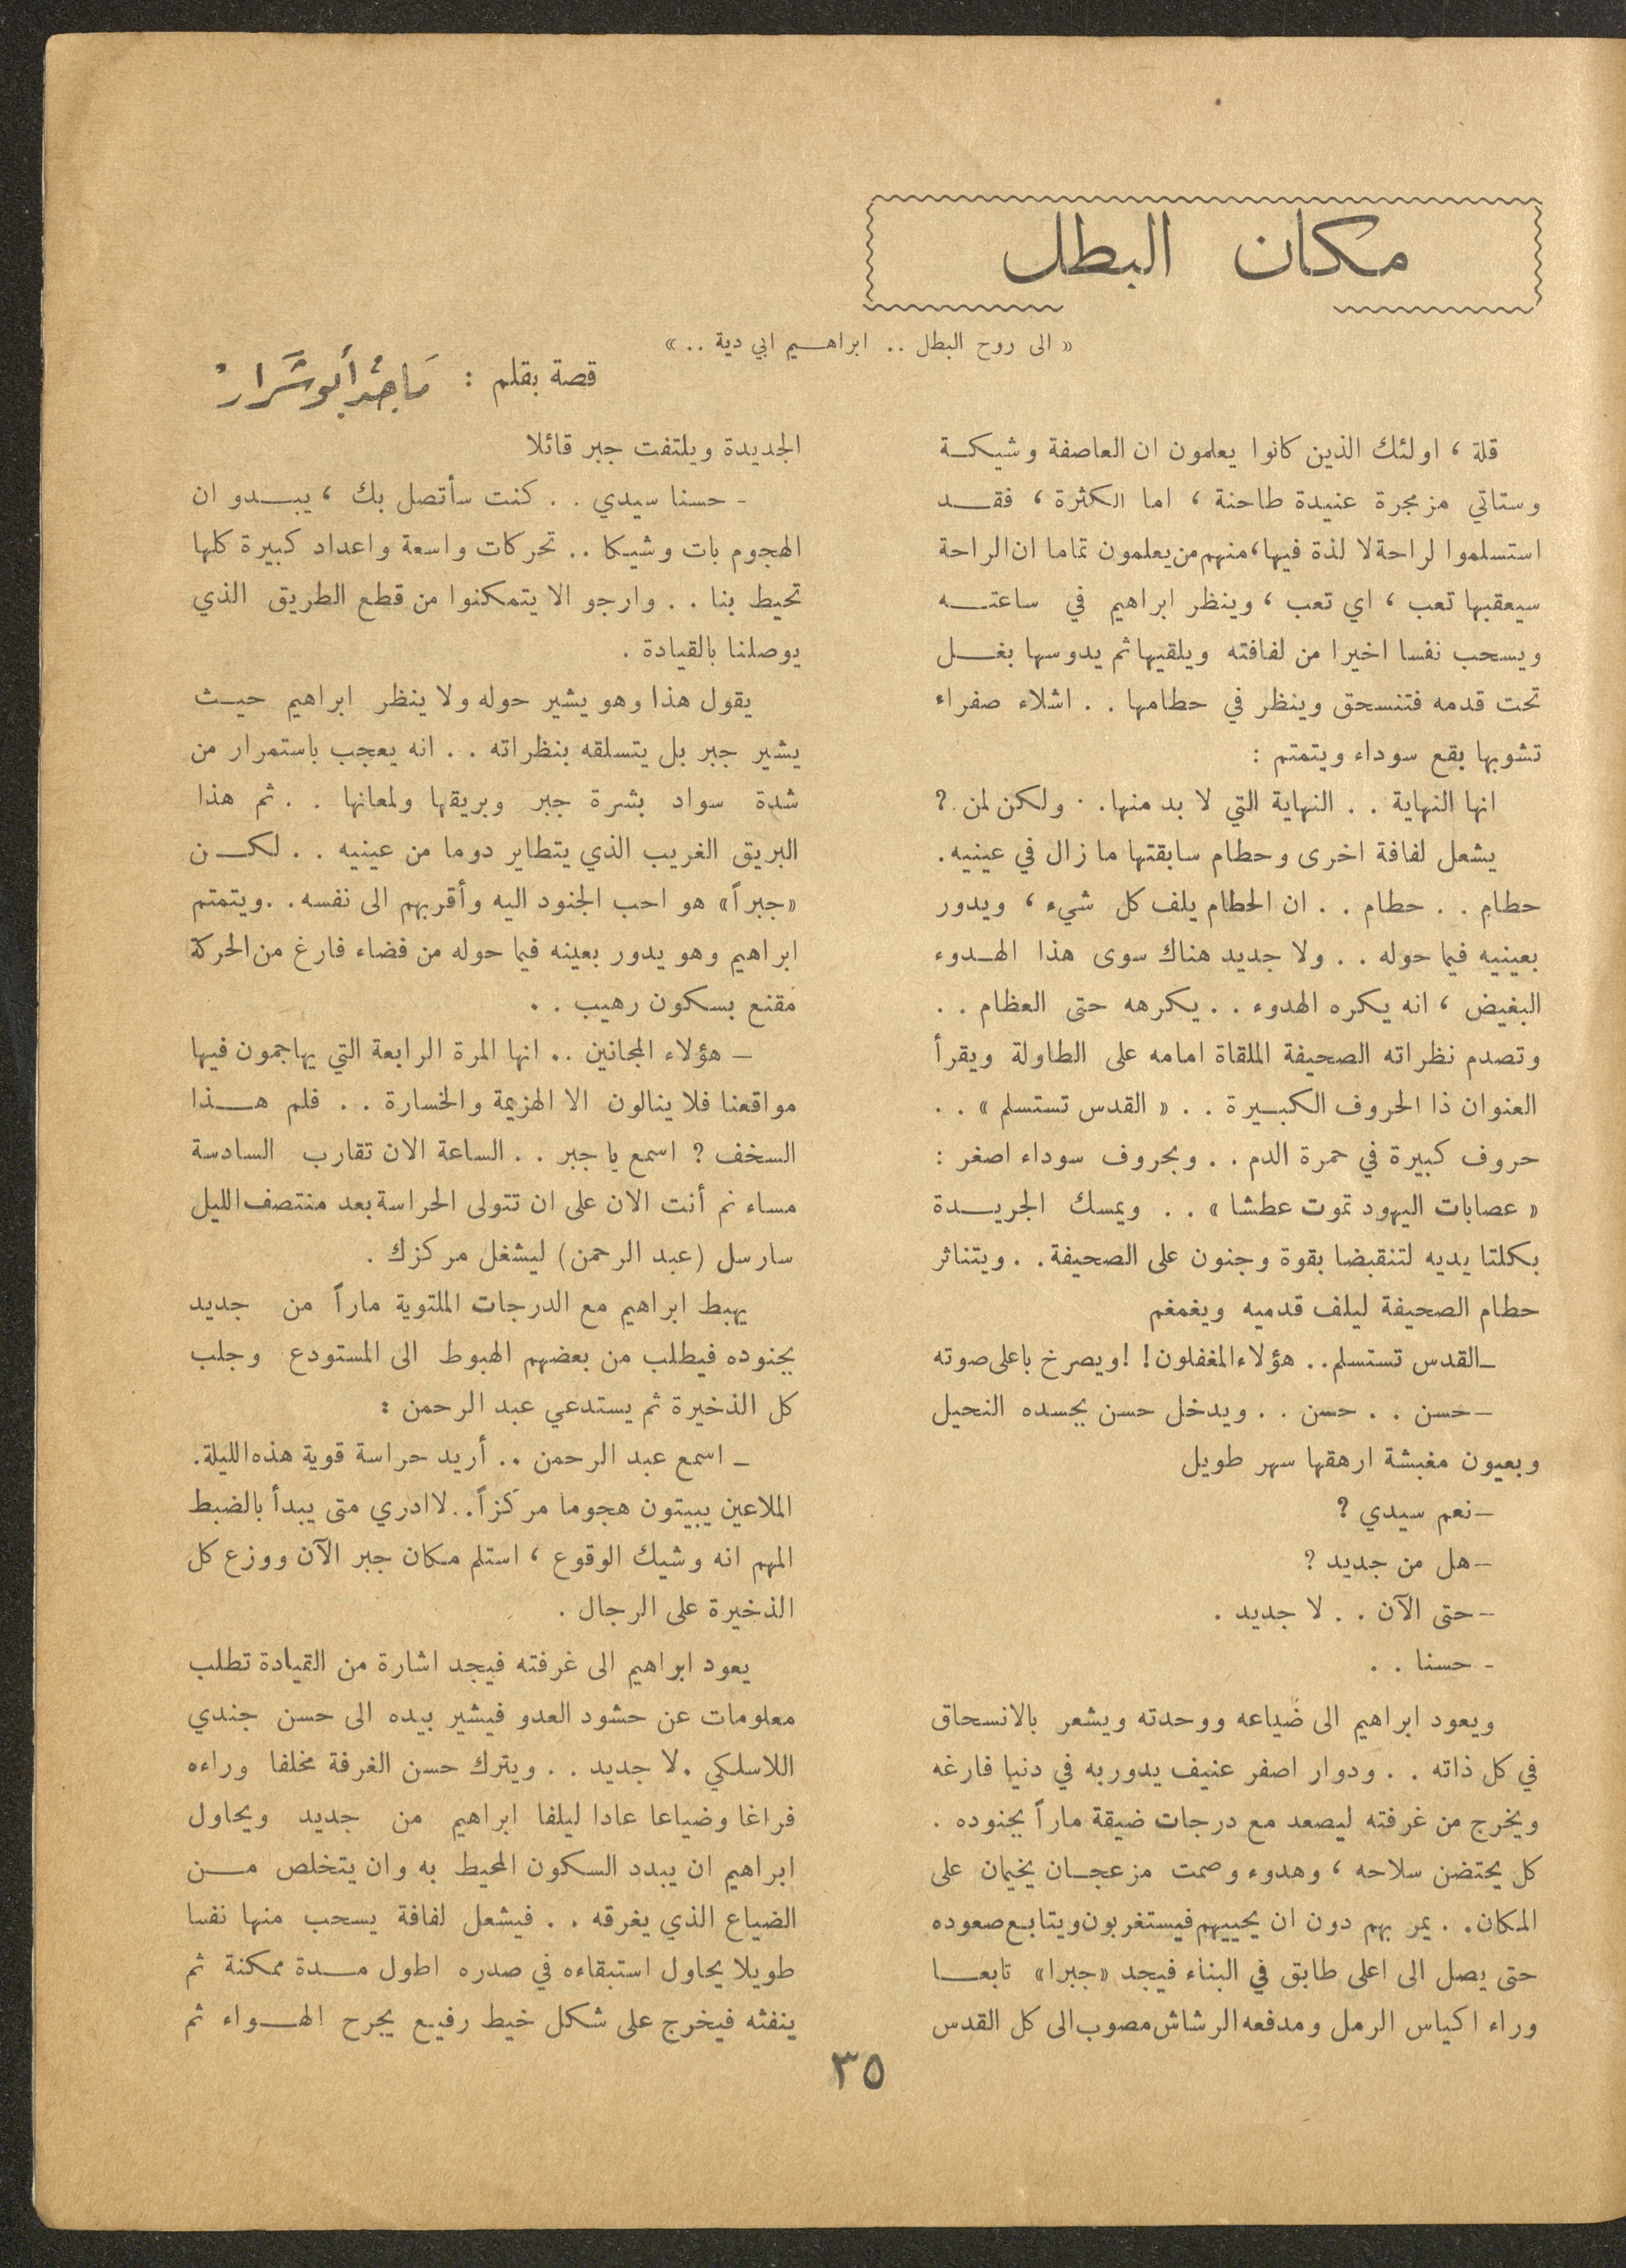 مكان البطل
« الى روح البطل .. ابراهيم ابي دية .. »
قصة بقلم : مَاجد أبو شَرار
قلة ، اولئك الذين كانوا يعلمون ان العاصفة وشيكة
وستاتي مزمجرة عنيدة طاحنة ، اما الكثرة ، فقد
استسلموا لراحة لا لذة فيها ، منهم من يعلمون تماما ان الراحة
سيعقبها تعب ، اي تعب ، وينظر ابراهيم في ساعته
ويسحب نفسا اخيرا من لفافته ويلقيها ثم يدوسها بغل
تحت قدمه فتنسحق وينظر في حطامها . . اشلاء صفراء
تشوبها بقع سوداء ويتمتم :
انها النهاية . . النهاية التي لا بد منها . . ولكن لمن ?
يشعل لفافة اخرى وحطام سابقتها ما زال في عينيه .
حطام . . حطام . . ان الحطام يلف كل شيء ، ويدور
بعينيه فيما حوله . . ولا جديد هناك سوى هذا الهدوء
البغيض ، انه يكره الهدوء . . يكرهه حتى العظام . .
وتصدم نظراته الصحيفة الملقاة امامه على الطاولة ويقرأ
العنوان ذا الحروف الكبيرة . . « القدس تستسلم » . .
حروف كبيرة في حمرة الدم . . وبحروف سوداء اصغر :
« عصابات اليهود تموت عطشا » . . ويمسك الجريدة
بكلتا يديه لتنقبضا بقوة وجنون على الصحيفة . . ويتناثر
حطام الصحيفة ليلف قدميه ويغمغم
ــ القدس تستسلم .. هؤلاء المغفلون ! ! ويصرخ باعلى صوته
ــ حسن . . حسن . . ويدخل حسن بجسده النحيل
وبعيون مغبشة ارهقها سهر طويل
ــ نعم سيدي ?
ــ هل من جديد ?
ــ حتى الآن . . لا جديد .
ـ حسنا . .
ويعود ابراهيم الى ضياعه ووحدته ويشعر بالانسحاق
في كل ذاته . . ودوار اصفر عنيف يدور به في دنيا فارغه
ويخرج من غرفته ليصعد مع درجات ضيقة ماراً بجنوده .
كل يحتضن سلاحه ، وهدوء وصمت مزعجان يخيمان على
المكان . . يمر بهم دون ان يحييهم فيستغربون ويتابع صعوده
حتى يصل الى اعلى طابق في البناء فيجد «جبرا» تابعا
وراء اكياس الرمل ومدفعه الرشاش مصوب الى كل القدس
الجديدة ويلتفت جبر قائلا
ـ حسنا سيدي . . كنت سأتصل بك ، يبدو ان
الهجوم بات وشيكا .. تحركات واسعة واعداد كبيرة كلها
تحيط بنا . . وارجو الا يتمكنوا من قطع الطريق الذي
يوصلنا بالقيادة .
يقول هذا وهو يشير حوله ولا ينظر ابراهيم حيث
يشير جبر بل يتسلقه بنظراته . . انه يعجب باستمرار من
شدة سواد بشرة جبر وبريقها ولمعانها . . ثم هذا
البريق الغريب الذي يتطاير دوما من عينيه . . لكن
«جبراً» هو احب الجنود اليه وأقربهم الى نفسه . . ويتمتم
ابراهيم وهو يدور بعينه فيما حوله من فضاء فارغ من الحركة
مقنع بسكون رهيب . .
ــ هؤلاء المجانين .. انها المرة الرابعة التي يهاجمون فيها
مواقعنا فلا ينالون الا الهزيمة والخسارة . . فلم هذا
السخف ? اسمع يا جبر . . الساعة الان تقارب السادسة
مساء نم أنت الان على ان تتولى الحراسة بعد منتصف الليل
سارسل (عبد الرحمن) ليشغل مركزك .
يهبط ابراهيم مع الدرجات الملتوية ماراً من جديد
بجنوده فيطلب من بعضهم الهبوط الى المستودع وجلب
كل الذخيرة ثم يستدعي عبد الرحمن :
ــ اسمع عبد الرحمن .. أريد حراسة قوية هذه الليلة .
الملاعين يبيتون هجوما مركزاً .. لا ادري متى يبدأ بالضبط
المهم انه وشيك الوقوع ، استلم مكان جبر الآن ووزع كل
الذخيرة على الرجال .
يعود ابراهيم الى غرفته فيجد اشارة من القيادة تطلب
معلومات عن حشود العدو فيشير بيده الى حسن جندي
اللاسلكي . لا جديد . . ويترك حسن الغرفة مخلفا وراءه
فراغا وضياعا عادا ليلفا ابراهيم من جديد ويحاول
ابراهيم ان يبدد السكون المحيط به وان يتخلص من
الضياع الذي يغرقه . . فيشعل لفافة يسحب منها نفسا
طويلا يحاول استبقاءه في صدره اطول مدة ممكنة ثم
ينفثه فيخرج على شكل خيط رفيع يجرح الهواء ثم
٣٥